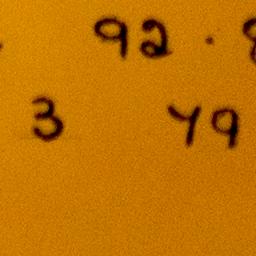 92 .
3 49